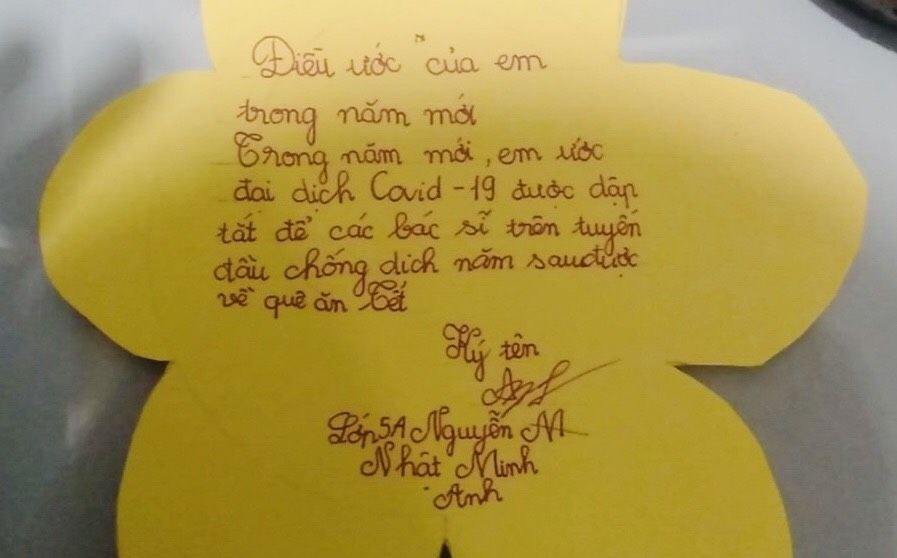 Điều ước " của em
trong năm mới
Trong năm mới, em ước
đại dịch Covid-19 được dập
tắt để các bác sĩ trên tuyến
đầu chống dịch năm sau được
về quê ăn Tết
Ký tên
Lớp 5A Nguyễn
Nhật Minh
Anh